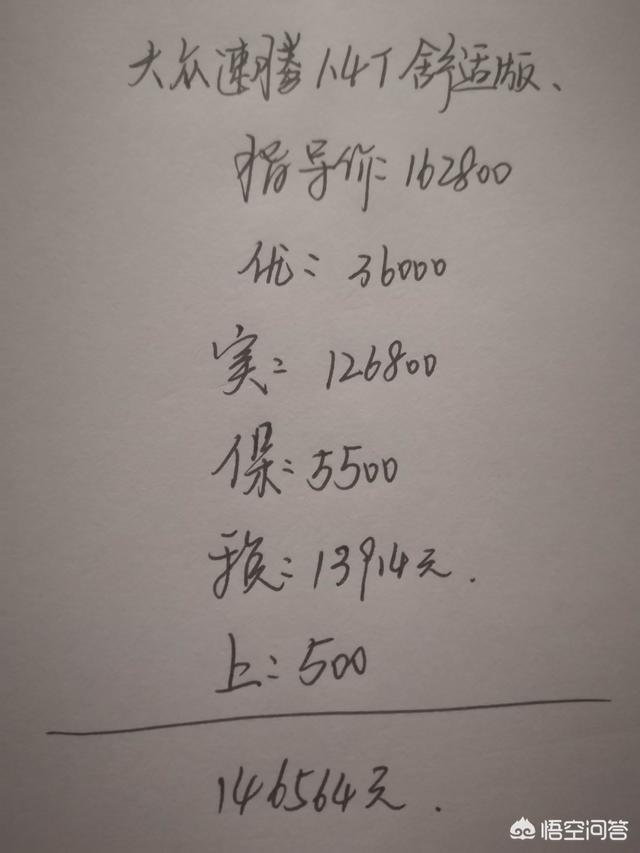 大众速腾1.4T舒适版、
指导价：162800
优：36000
实：126800
保：5500
预：13914元.
上：500
146564元.
悟空问答